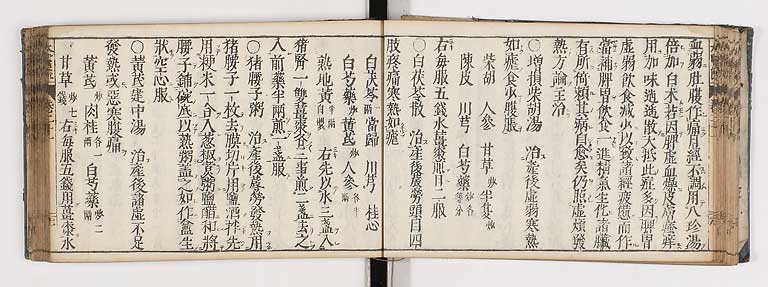 血弱肚腹作痛月經不調用八珍湯
倍加白朮若因脾虛血燥皮膚瘙痒
用加味逍遙散大抵此症多因脾胃
虛弱飲食減少以致諸經疲憊而作
當補脾胃飲食一進精氣生化諸臟
有所倚頼其病自愈矣仍參虛煩發
熱方論主治
○增損柴胡湯 治產後虛弱寒熱
如瘧食少腹脹
柴胡 人參 甘草炒 半夏炒
陳皮 川芎 白芍藥炒各等分
右每服五錢水薑棗煎日二服
○白茯苓散 治產後蓐勞頭目四
肢疼痛寒熱如瘧
白茯苓一兩 當歸 川芎 桂心
白芍藥炒 黃芪炒 人參各半兩
熟地黃半兩自製 右先以水三盞入
猪腎一雙薑棗各三事煎二盞去之
入前藥半兩煎一盞服
○猪腰子粥 治產後蓐勞發熱用
猪腰子一枚去膜切片用鹽酒拌先
用粳米一合入葱椒煮粥鹽醋和將
腰子鋪碗底以熱粥蓋之如作盦生
狀空心服
○黃芪建中湯 治產後諸虛不足
發熱或惡寒腹痛
黃芪炒 肉桂各一兩 白芍藥炒二兩
甘草炒七錢 右每服五錢用薑棗水